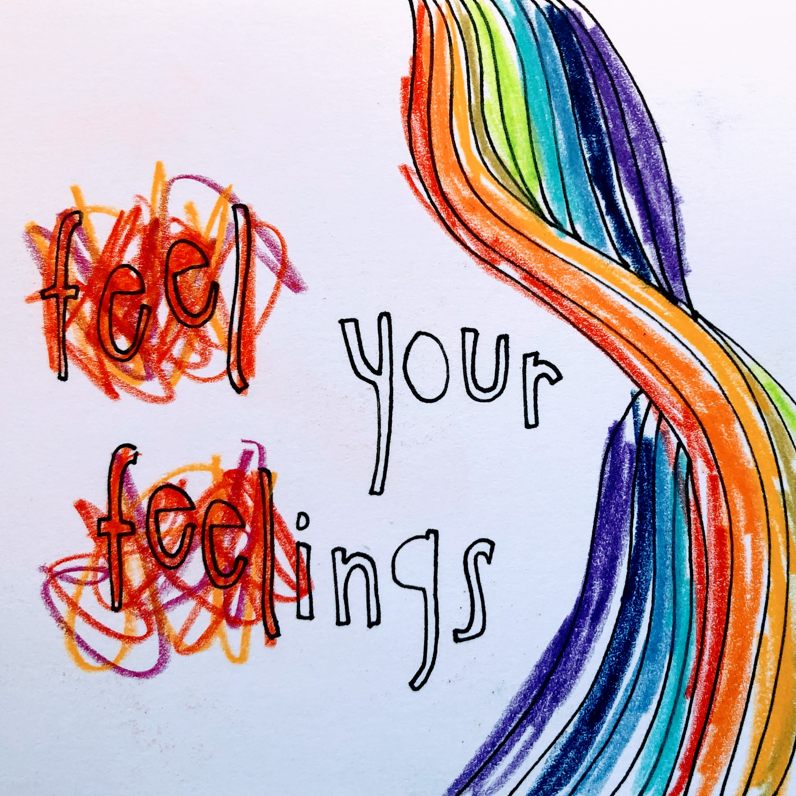 feel
your
feelings